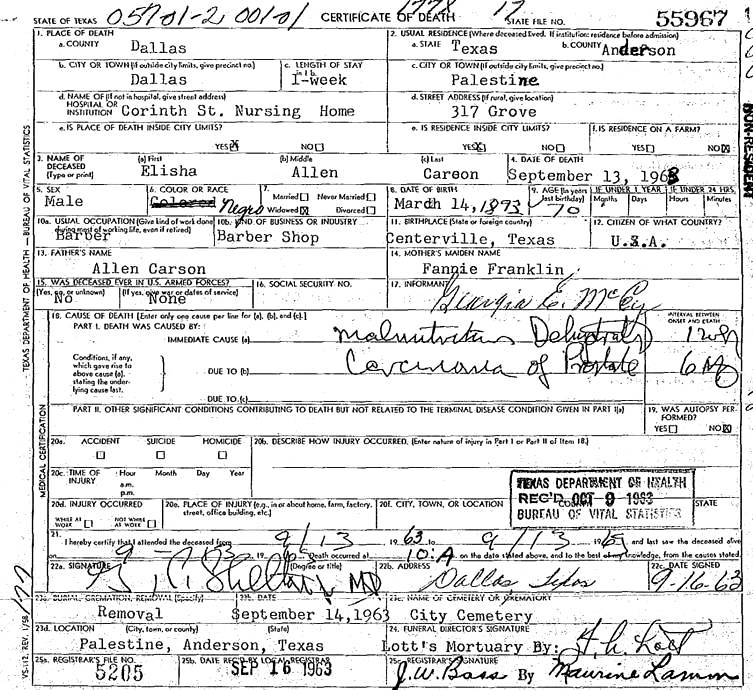 STATE OF TEXAS 05701-2 00101 CERTIFICATE OF DEATH 1778 17 STATE FILE NO. 55967
1. PLACE OF DEATH
a. COUNTY Dallas
2. USUAL RESIDENCE (Where deceased lived. If institution: residence before admission)
a. STATE Texas b. COUNTY Anderson
b. CITY OR TOWN (If outside city limits, give precinct no.) Dallas
c. LENGTH OF STAY in 1 b. 1-week
c. CITY OR TOWN (If outside city limits, give precinct no.) Palestine
d. NAME OF (If not in hospital, give street address) HOSPITAL OR INSTITUTION Corinth St. Nursing Home
d. STREET ADDRESS (If rural, give location) 317 Grove
e. IS PLACE OF DEATH INSIDE CITY LIMITS? YES X NO
e. IS RESIDENCE INSIDE CITY LIMITS? YES X NO
f. IS RESIDENCE ON A FARM? YES NO X
NON-RESIDENT
3. NAME OF DECEASED (Type or print) (a) First Elisha (b) Middle Allen (c) Last Carson
4. DATE OF DEATH September 13, 1963
5. SEX Male
6. COLOR OR RACE Colored Negro
7. Married Never Married Widowed X Divorced
8. DATE OF BIRTH March 14, 1893
9. AGE (In years last birthday) 70
IF UNDER 1 YEAR Months Days
IF UNDER 24 HRS. Hours Minutes
10a. USUAL OCCUPATION (Give kind of work done during most of working life, even if retired) Barber
10b. KIND OF BUSINESS OR INDUSTRY Barber Shop
11. BIRTHPLACE (State or foreign country) Centerville, Texas
12. CITIZEN OF WHAT COUNTRY? U.S.A.
13. FATHER'S NAME Allen Carson
14. MOTHER'S MAIDEN NAME Fannie Franklin
15. WAS DECEASED EVER IN U.S. ARMED FORCES? (Yes, no, or unknown) No (If yes, give war or dates of service) None
16. SOCIAL SECURITY NO.
17. INFORMANT Georgia E. McCoy
18. CAUSE OF DEATH [Enter only one cause per line for (a), (b), and (c).]
INTERVAL BETWEEN ONSET AND DEATH
PART I. DEATH WAS CAUSED BY:
IMMEDIATE CAUSE (a) Malnutrition Dehydrat
Conditions, if any, which gave rise to above cause (a), stating the underlying cause last.
DUE TO (b) Carcinoma of Prostate 6 Mo
DUE TO (c)
PART II. OTHER SIGNIFICANT CONDITIONS CONTRIBUTING TO DEATH BUT NOT RELATED TO THE TERMINAL DISEASE CONDITION GIVEN IN PART I(a)
19. WAS AUTOPSY PERFORMED? YES NO X
20a. ACCIDENT SUICIDE HOMICIDE
20b. DESCRIBE HOW INJURY OCCURRED. (Enter nature of injury in Part I or Part II of Item 18.)
20c. TIME OF INJURY Hour Month Day Year
a.m.
p.m.
TEXAS DEPARTMENT OF HEALTH
REC'D OCT 9 1963
BUREAU OF VITAL STATISTICS
20d. INJURY OCCURRED WHILE AT WORK NOT WHILE AT WORK
20e. PLACE OF INJURY (e.g., in or about home, farm, factory, street, office building, etc.)
20f. CITY, TOWN, OR LOCATION COUNTY STATE
21. I hereby certify that I attended the deceased from 9/13 1963 to 9/13 1963 and last saw the deceased alive
on 19 Death occurred at 10:A on the date stated above, and to the best of my knowledge, from the causes stated.
22a. SIGNATURE (Degree or title) MD
22b. ADDRESS Dallas Texas
22c. DATE SIGNED 9-16-63
23a. BURIAL, CREMATION, REMOVAL (Specify) Removal
23b. DATE September 14, 1963
23c. NAME OF CEMETERY OR CREMATORY City Cemetery
23d. LOCATION (City, town, or county) (State) Palestine, Anderson, Texas
24. FUNERAL DIRECTOR'S SIGNATURE Lott's Mortuary By: H. h. Lott
25a. REGISTRAR'S FILE NO. 5205
25b. DATE REC'D BY LOCAL REGISTRAR SEP 16 1963
25c. REGISTRAR'S SIGNATURE J.W. Bass By Maurine Lamm
TEXAS DEPARTMENT OF HEALTH — BUREAU OF VITAL STATISTICS
MEDICAL CERTIFICATION
VS-112 REV. 1/58